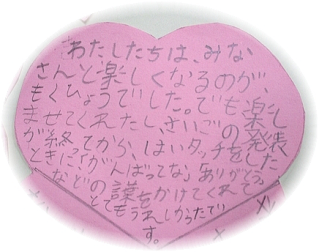 わたしたちは、みな
さんと楽しくなるのが、
もくひょうでした。でも楽し
ませてくれたさいごの発表
が終ってから、はいタッチをした
ときに「がんばってな」「ありがとう」
などの言葉をかけてくれて
とてもうれしかったで
す。